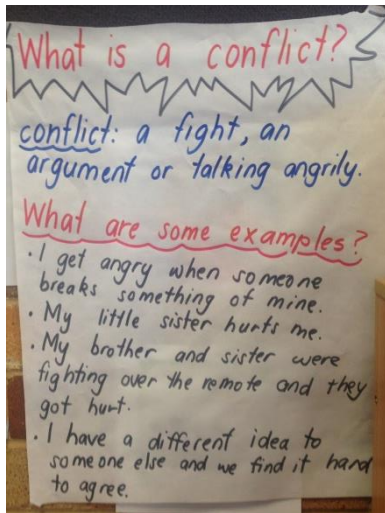 What is a conflict?
conflict: a fight, an
argument or talking angrily.
What are some examples?
• I get angry when someone
breaks something of mine.
• My little sister hurts me.
• My brother and sister were
fighting over the remote and they
got hurt.
• I have a different idea to
someone else and we find it hard
to agree.